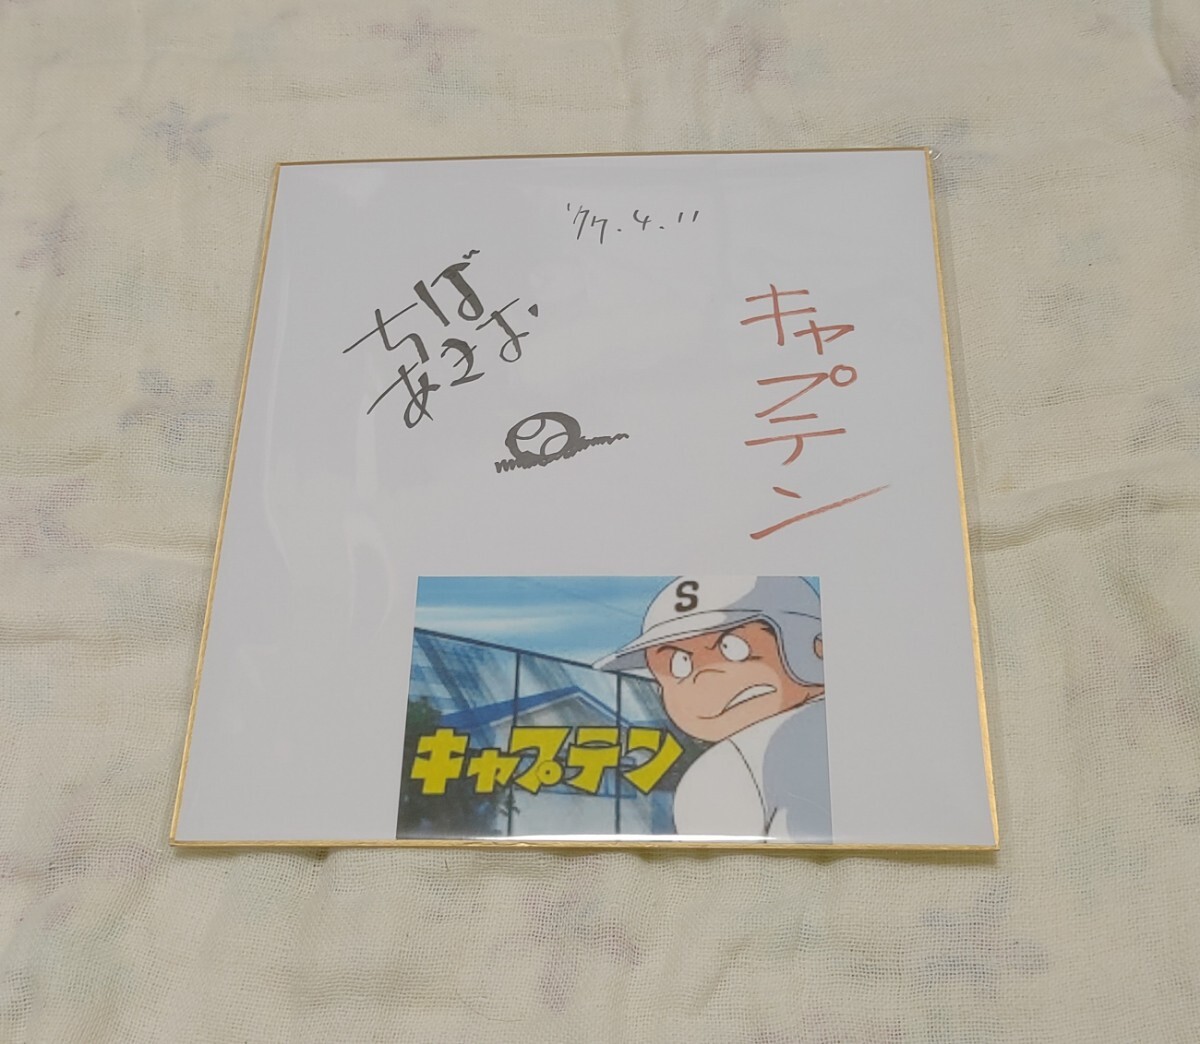 '77.4.11
キャプテン
ちば
あきお
S
キャプテン